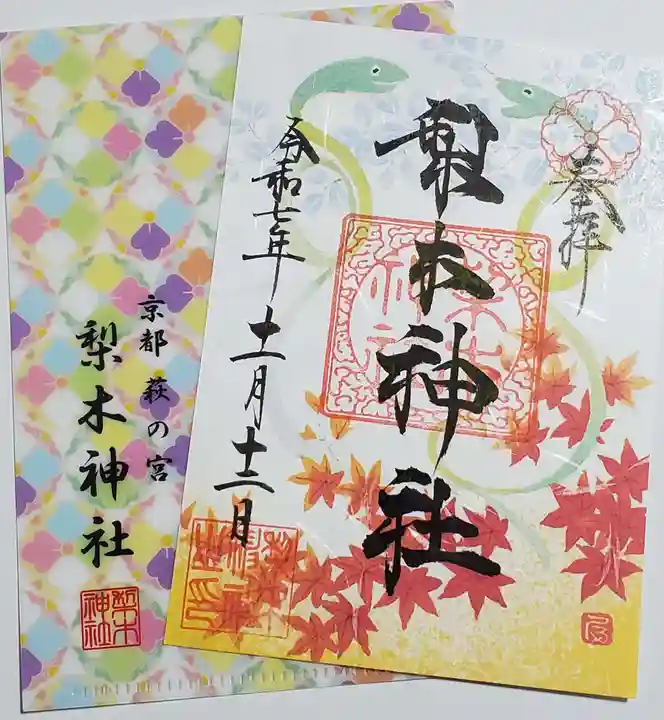 奉拝
梨木神社
令和七年 十一月十三日
京都 萩の宮
梨木神社
梨木神社